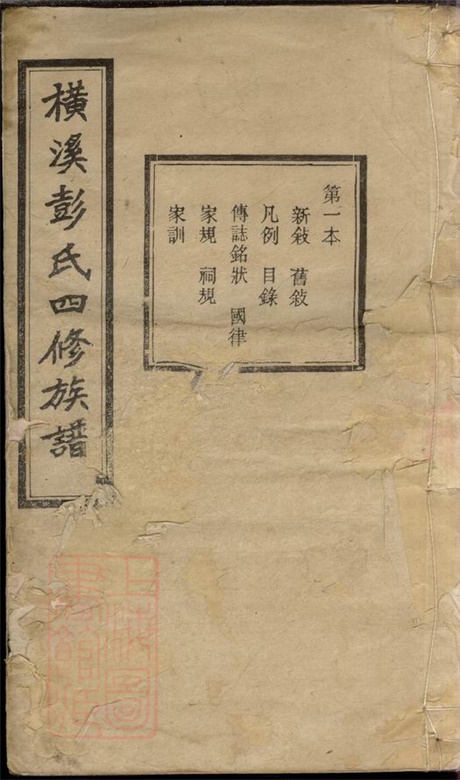 第一本
新敍 舊敍
凡例 目錄
傳誌銘狀 國律
家規 祠規
家訓
橫溪彭氏四修族譜